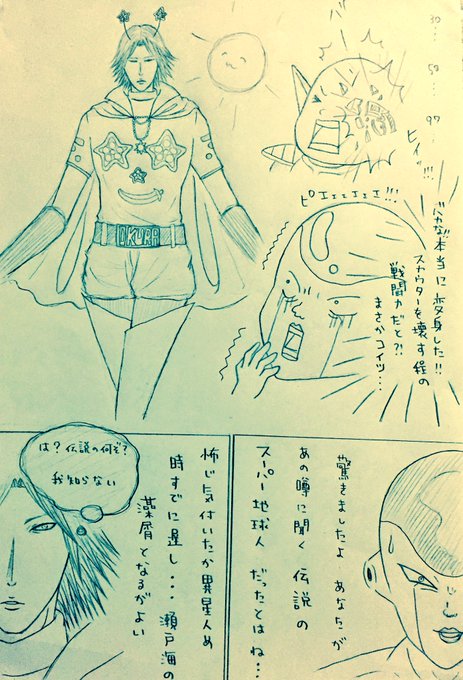 30…
53…
97…
バーン
ヒィッ!!!
ピエェェェェェ!!!
バカな 本当に変身した!!
スカウターを壊す程の
戦闘力だと?!
まさかコイツ…
OKURA
驚きましたよ あなたが
あの噂に聞く伝説の
スーパー地球人 だったとはね…
怖じ気付いたか異星人め
時すでに遅し… 瀬戸海の
藻屑となるがよい
は?伝説の何ぞ?
我知らない